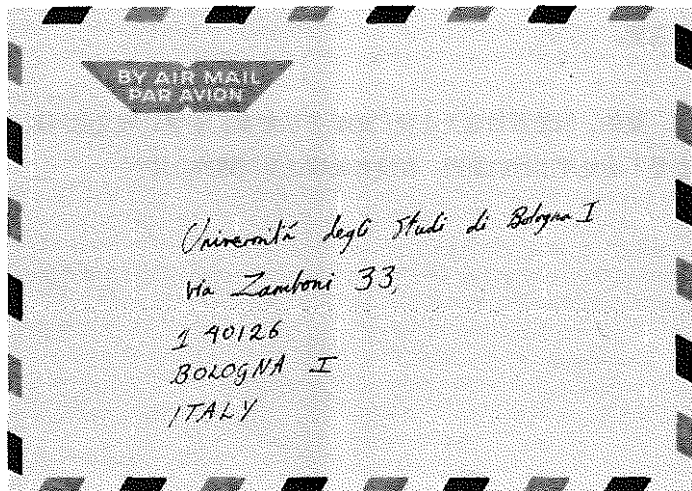 BY AIR MAIL
PAR AVION
Università degli Studi di Bologna I
Via Zamboni 33,
I 40126
BOLOGNA I
ITALY